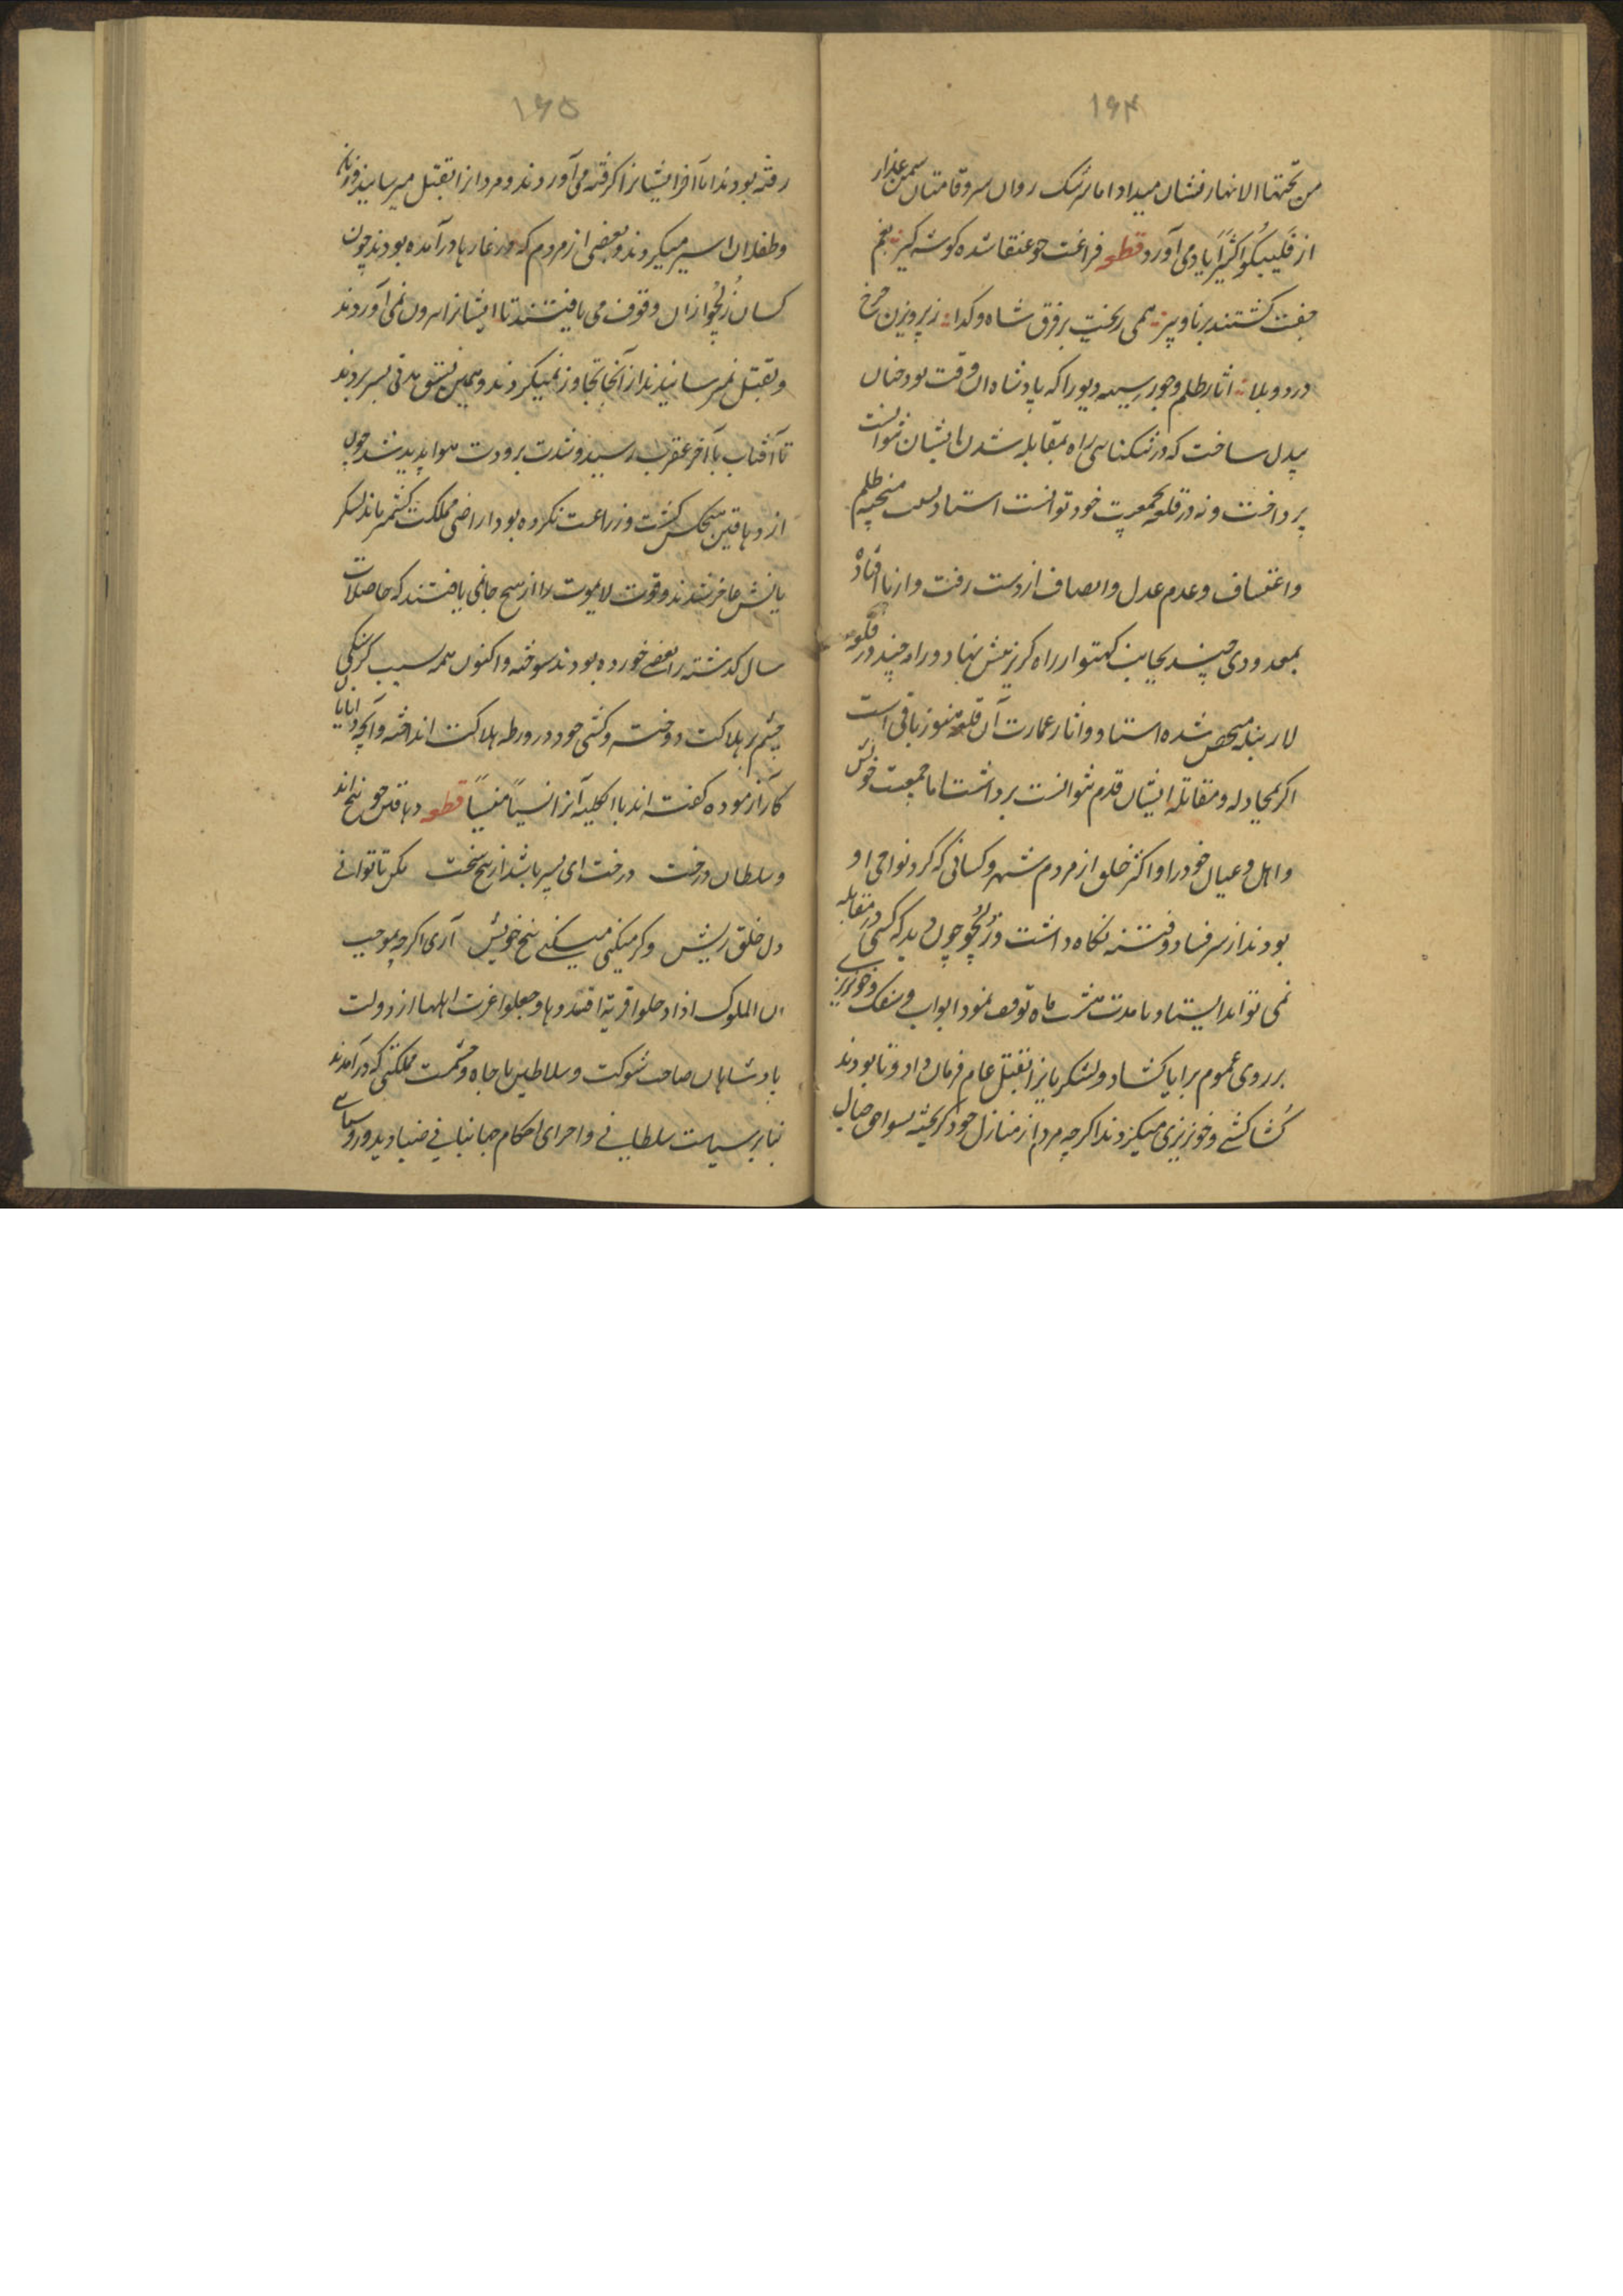 ۱۶۴
من تحتها الانهار نشان میداد اما سرشک روان سروقامتان سیمین عذار
از فلیبکوا کثیرا یاد می آورد قطعه فراغت چو عنقا شده گوشه گیر بغم
جفت گشتند برنا و پیر همی ریخت بر فرق شاه و گدا ز پرویزن چرخ
درد و بلا اثار ظلم و جور سیهه دیو را که پادشاه ان وقت بود چنان
بیدل ساخت که در تنکنای راه بمقابله شدن بایشان نتوانست
پرداخت و نه در قلعه بجمعیت خود توانست استاد ظلم
واعتساف و عدم عدل و انصاف از دست رفت و از پا افتاد
بمعدودی چند بجانب کهتوار راه گریز پیش نهاد و راه چند در قلعه
لار متحصن شده استاد و اثار عمارت آن قلعه هنوز باقی است
اگر بمجادله و مقاتله ایشان قدم نتوانست برداشت اما جمعیت خویش
و اهل و عیال خود را و اکثر خلق از مردم شهر و کسانی که گرد نواحی او
بودند از سر فساد و فتنه نگاه داشت ذُلچُو چون دید که کسی در مقابله
نمی تواند ایستاد تا مدت هشت ماه توقف نمود ابواب سفک و خونریزی
بر روی عموم برایا گشاد و لشکریانرا بقتل عام فرمان داد و تا بودند
کُشاکشی و خونریزی میکردند اگرچه مردم از منازل خود گریخته بنواحی جبال
۱۶۵
رفته بودند اما آخر ایشانرا گرفته می آوردند و مردانرا بقتل میرسانیدند و زنان
و طفلان اسیر میکردند و بعضی از مردم که در غارها درآمده بودند چون
کسان ذُلچُو ازان وقوف می یافتند تا ایشانرا بیرون نمی آوردند
و بقتل نمیرسانیدند از آنجا تجاوز نمیکردند و بهمین نسق مدتی بسر بردند
تا آفتاب بآخر عقرب رسید و شدت برودت هوا پدید شد چون
از دهاقین هیچکس کشت و زراعت نکرده بود در اراضی مملکت کشمیر ماند لشکر
یانش عاجز شدند و قوت لایموت را از هیچ جا نمی یافتند که حاصلات
سال گذشته را بعضی خورده بودند و سوخته و اکنون همه بسبب گرسنگی
چشم بر هلاکت دوخته و کشتی خود در ورطه هلاکت انداخته و آنچه دانایان
کار آزموده گفته اند بالکلیه آنرا نسیاً منسیاً قطعه دهاقین چو بیخ اند
و سلطان درخت درخت ای پسر باشد از بیخ سخت مکن تا توانی
دل خلق ریش و گر میکنی میکنی بیخ خویش آری اگرچه بموجب
ان الملوک اذا دخلوا قریة افسدوها و جعلوا اعزت اهلها از دولت
پادشاهان صاحب شوکت و سلاطین با جاه و حشمت مملکتی که درآمدند
بنابر سیاست سلطانی و اجرای احکام جهانبانی صنادید و روسای